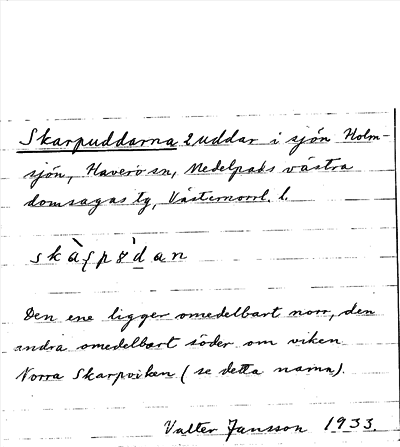 Skarpuddarna 2 uddar i sjön Holm-
sjön, Haverö sn, Medelpads västra
domsagas tg, Västernorrl. l.
Den ene ligger omedelbart norr, den
andra omedelbart söder om viken
Norra Skarpviken (se detta namn).
Valter Jansson 1933.